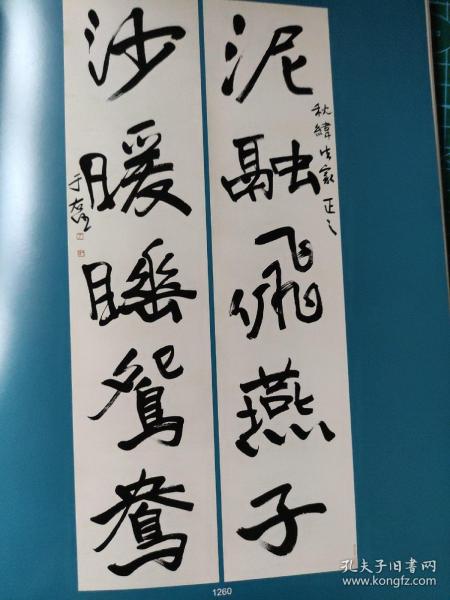 泥融飛燕子
秋緯方家正之
沙暖睡鴛鴦
于右任
1260
孔夫子旧书网
www.kongfz.com